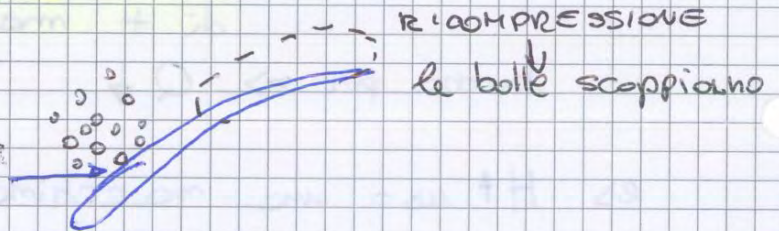 RICOMPRESSIONE
le bolle scoppiano